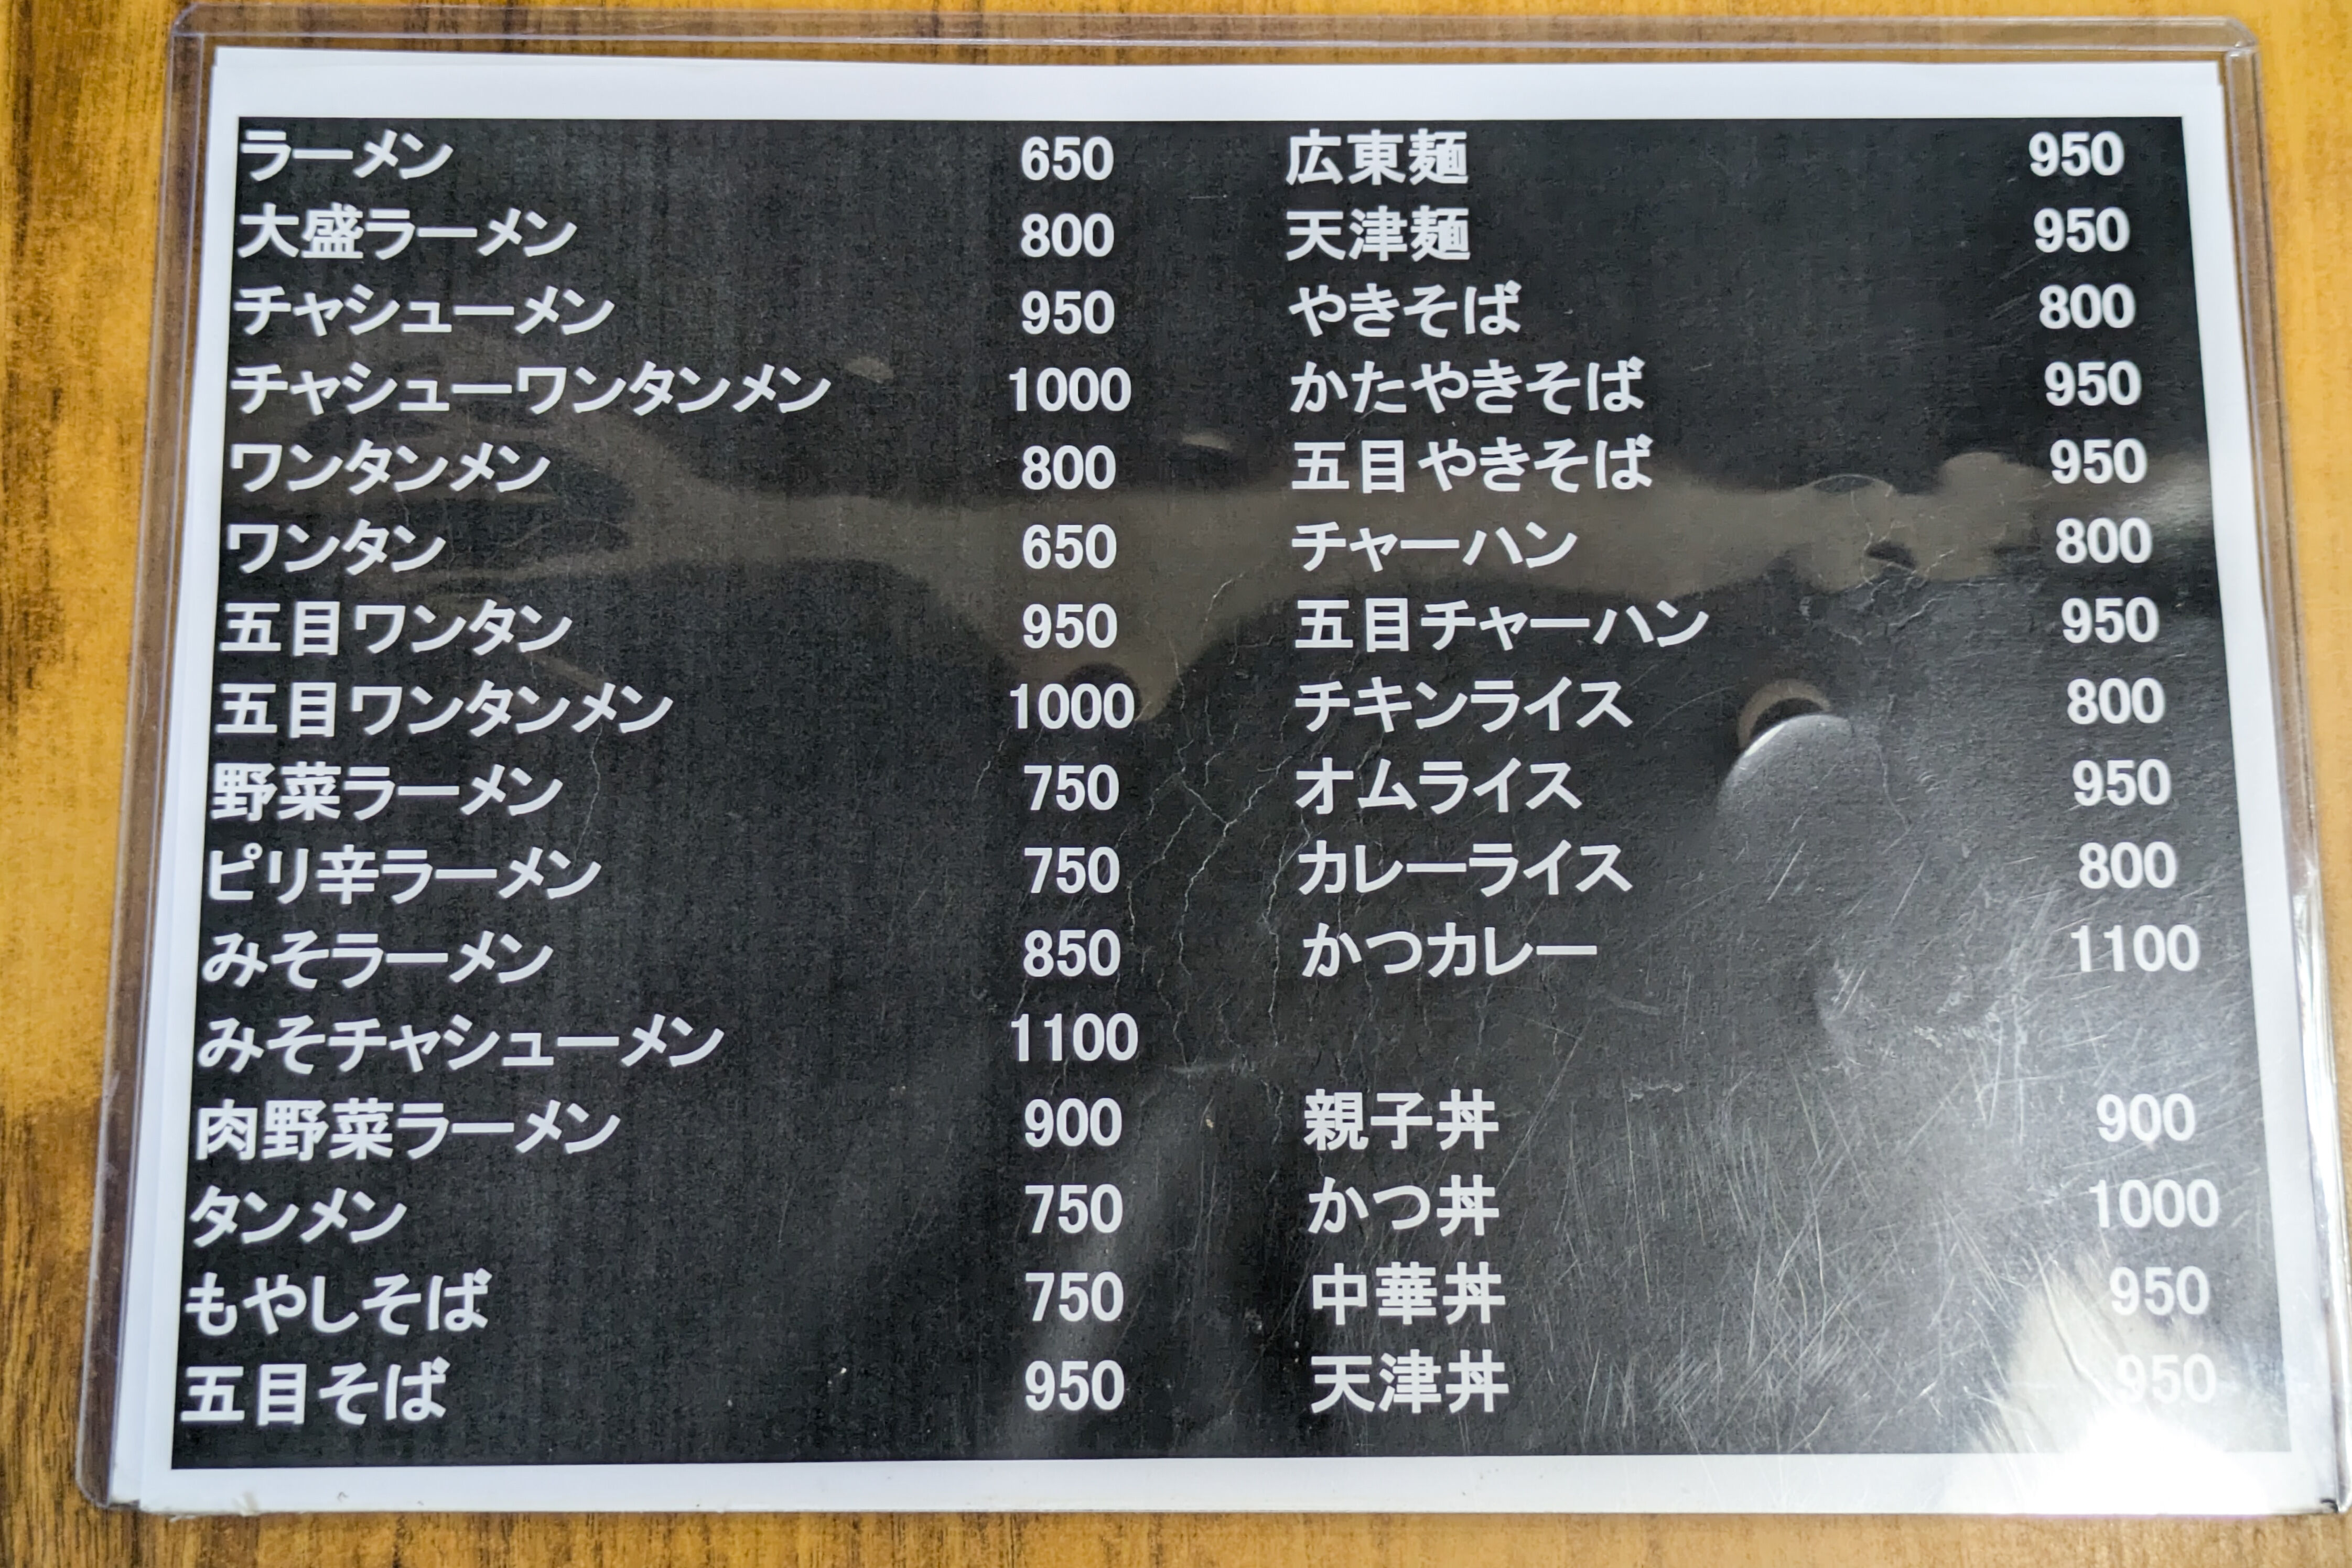 ラーメン 650
大盛ラーメン 800
チャシューメン 950
チャシューワンタンメン 1000
ワンタンメン 800
ワンタン 650
五目ワンタン 950
五目ワンタンメン 1000
野菜ラーメン 750
ピリ辛ラーメン 750
みそラーメン 850
みそチャシューメン 1100
肉野菜ラーメン 900
タンメン 750
もやしそば 750
五目そば 950
広東麺 950
天津麺 950
やきそば 800
かたやきそば 950
五目やきそば 950
チャーハン 800
五目チャーハン 950
チキンライス 800
オムライス 950
カレーライス 800
かつカレー 1100
親子丼 900
かつ丼 1000
中華丼 950
天津丼 950